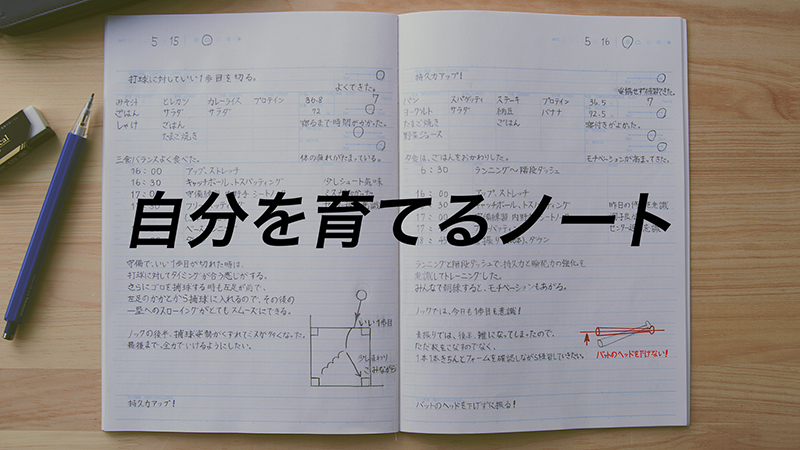 5 15
打球に対していい1歩目を切る。
よくできた。
みそ汁 ヒレカツ カレーライス プロテイン 36.8 7
ごはん サラダ サラダ 72
しゃけ ごはん 寝るまで時間がかかった。
たまご焼き
三食バランスよく食べた。 体の疲れがたまっている。
16:00 アップ、ストレッチ
16:30 キャッチボール、トスバッティング 少しシュート気味
守備で、いい1歩目が切れた時は、
打球に対してタイミングが合う感じがする。
さらにゴロを捕球する時も左足が前で、
左足のかかとから捕球に入れるので、その後の
一塁へのスローイングがとてもスムーズにできる。
ノックの後半、捕球姿勢がくずれてミスが多くなった。
最後まで、全力でいけるようにしたい。
いい1歩目
少しまわり
こみながら
持久力アップ!
5 16
持久力アップ!
パン スパゲッティ ステーキ プロテイン 36.5 7
ヨーグルト サラダ 納豆 バナナ 72.5
たまご焼き ごはん 寝付きがよかった。
野菜ジュース
夕食は、ごはんをおかわりした。 モチベーションが高まってきた。
6:30 ランニング〜階段ダッシュ
16:00 アップ、ストレッチ
自分を育てるノート
ランニングと階段ダッシュで、持久力と瞬発力の強化を
意識してトレーニングした。
みんなで朝練すると、モチベーションもあがる。
ノックでは、今日も1歩目を意識!
素振りでは、後半、雑になってしまったので、
ただ数をこなすのでなく、
1本1本きちんとフォームを確認しながら練習していきたい。
バットのヘッドを下げない!
バットのヘッドを下げずに振る!